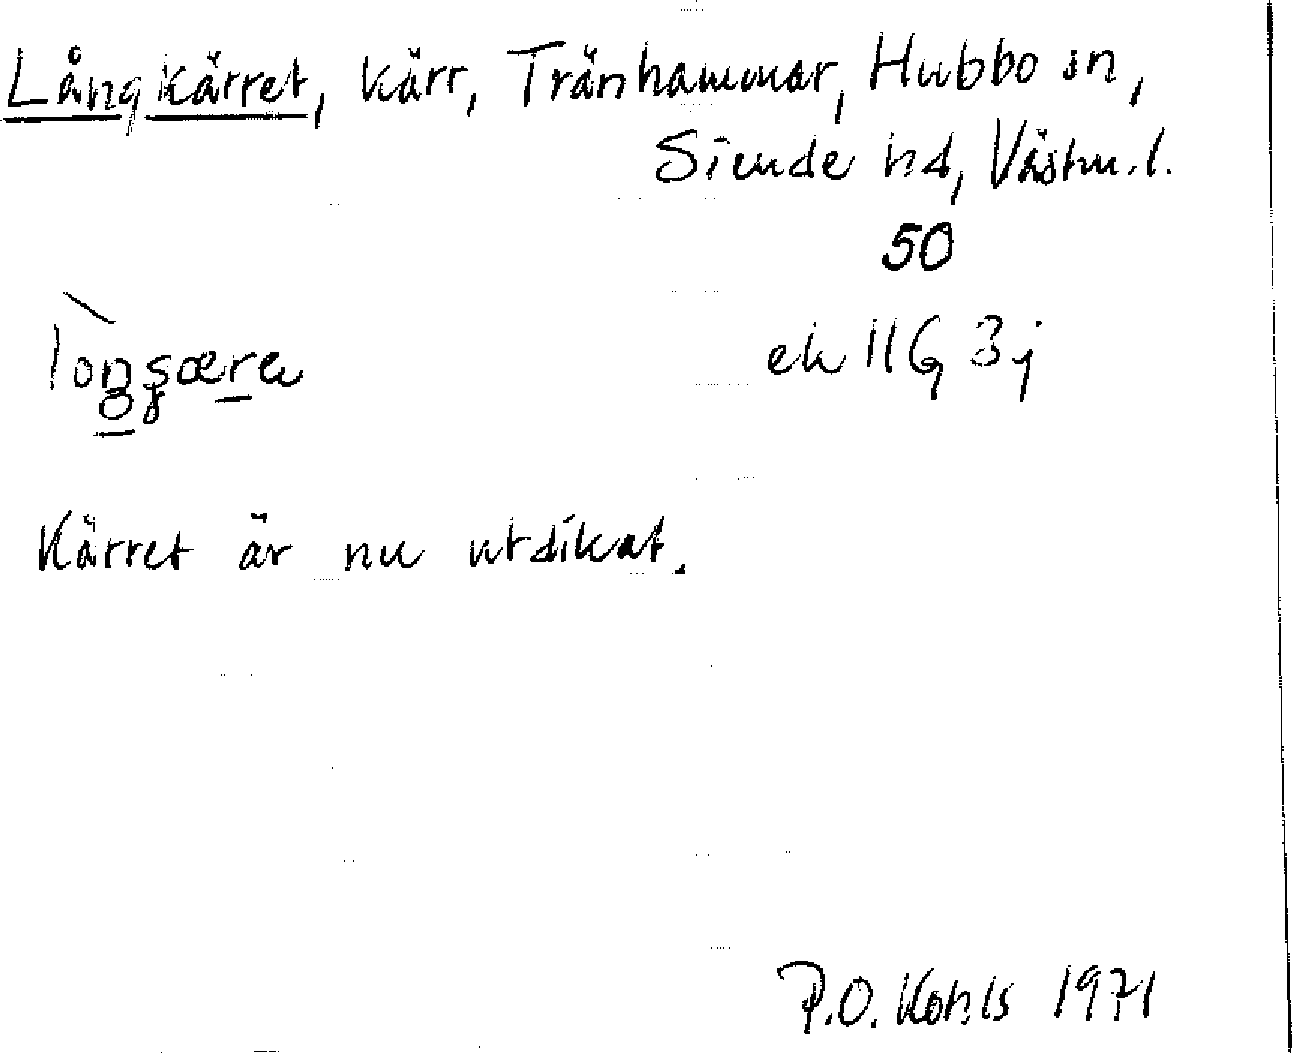 Långkärret, kärr, Tränhammar, Hubbo sn,
Siende hd, Västm.l.
50
ek 11G 3j
Kärret är nu utdikat.
P.O. Kohls 1971